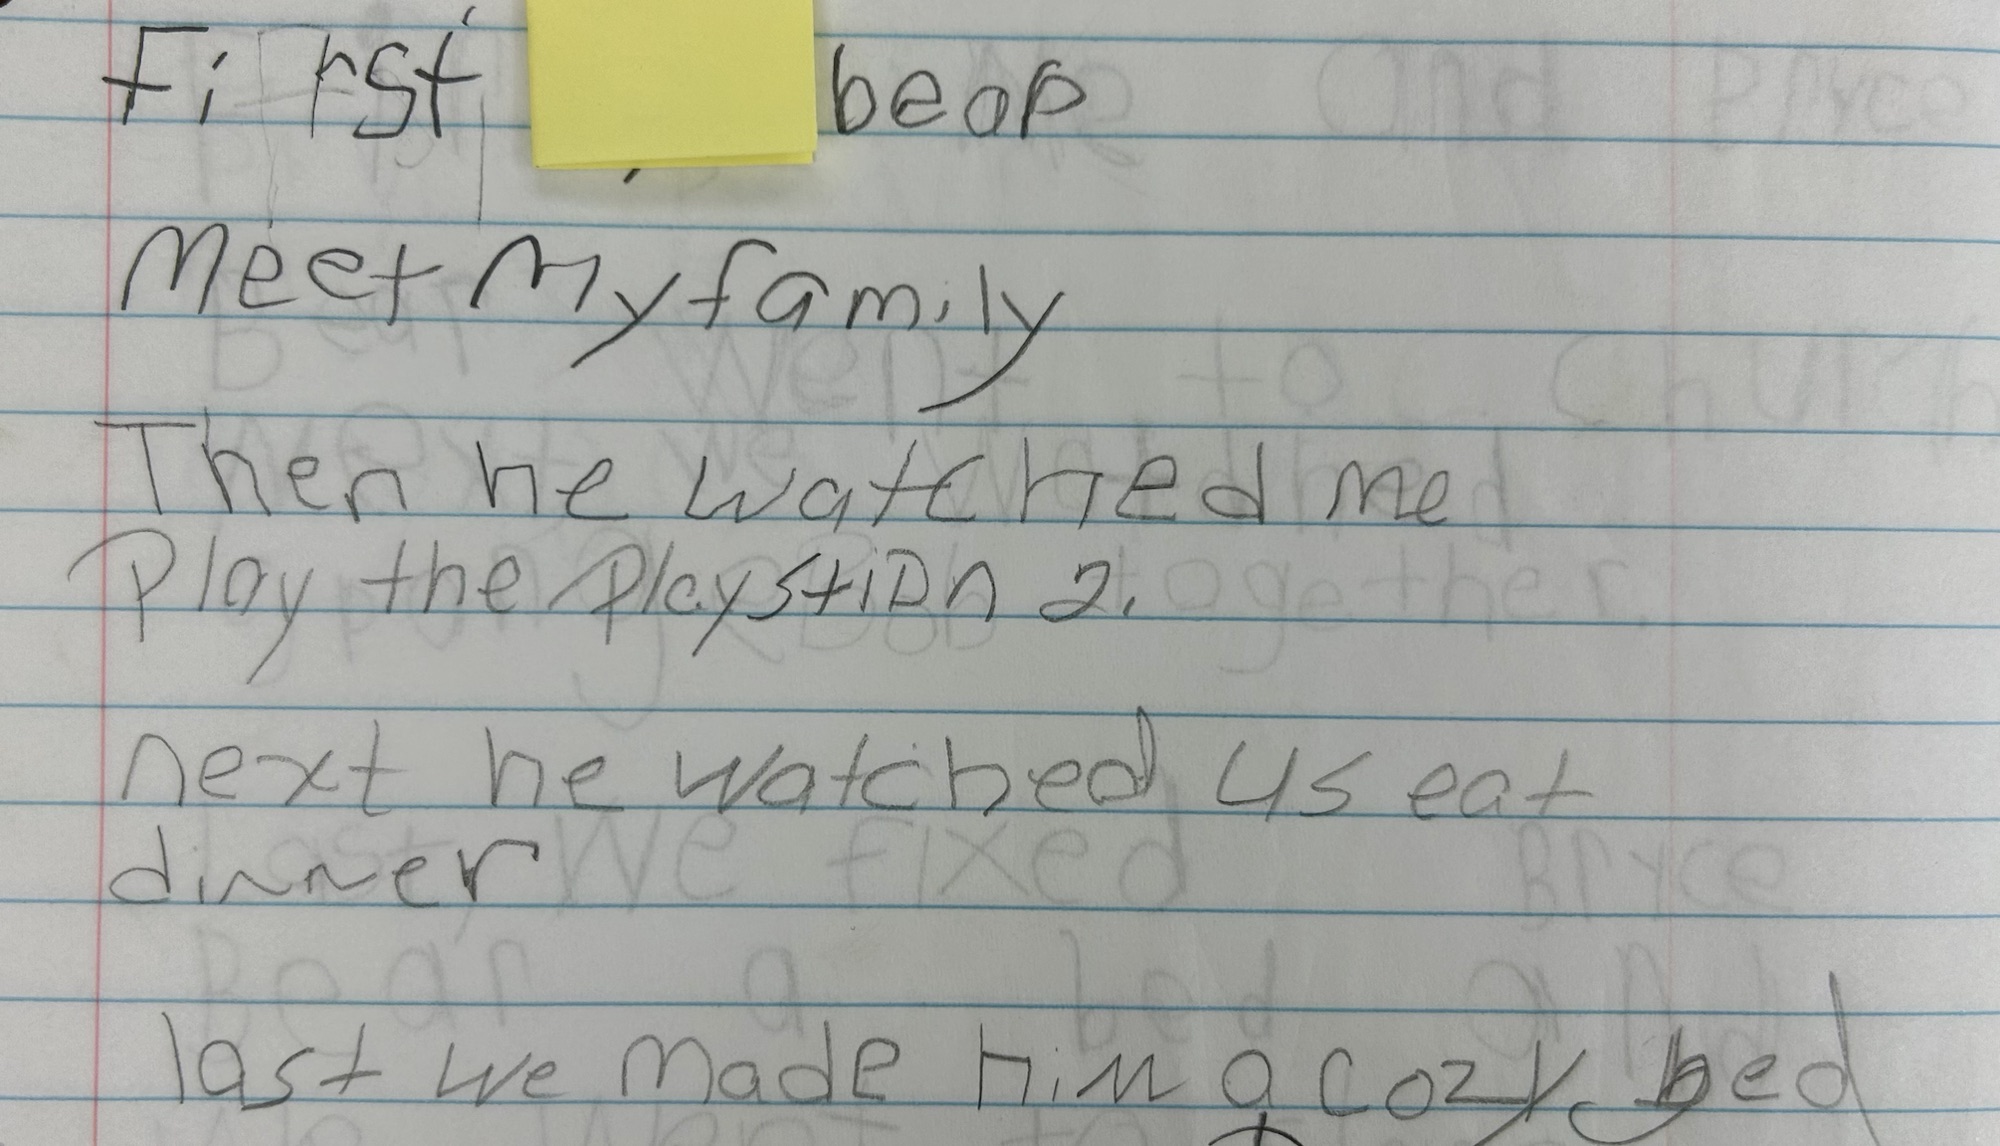 First, beap
Meet My family
Then he watched me
Play the Playstion 2.
next he watched us eat
dinner
last we made him a cozy bed